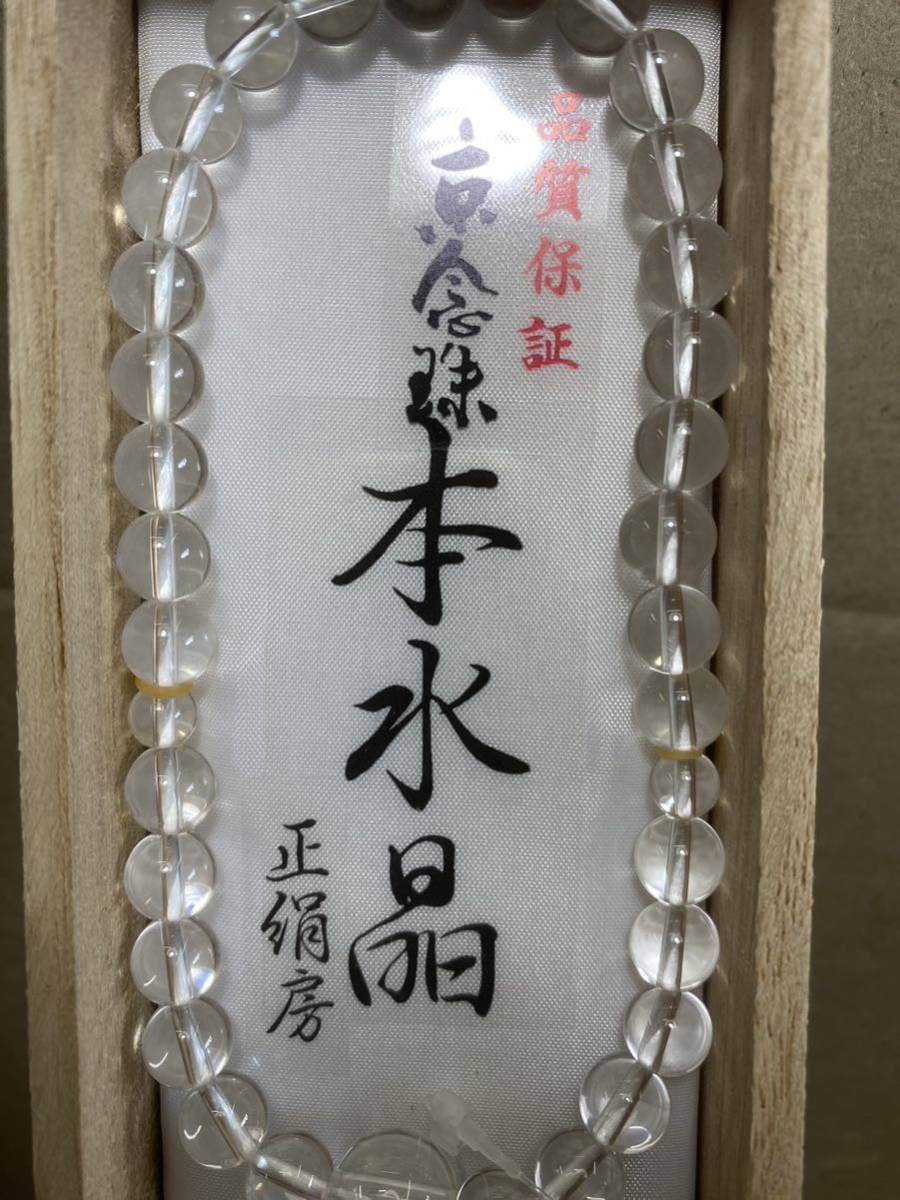 品質保証
京念珠
本水晶
正絹房